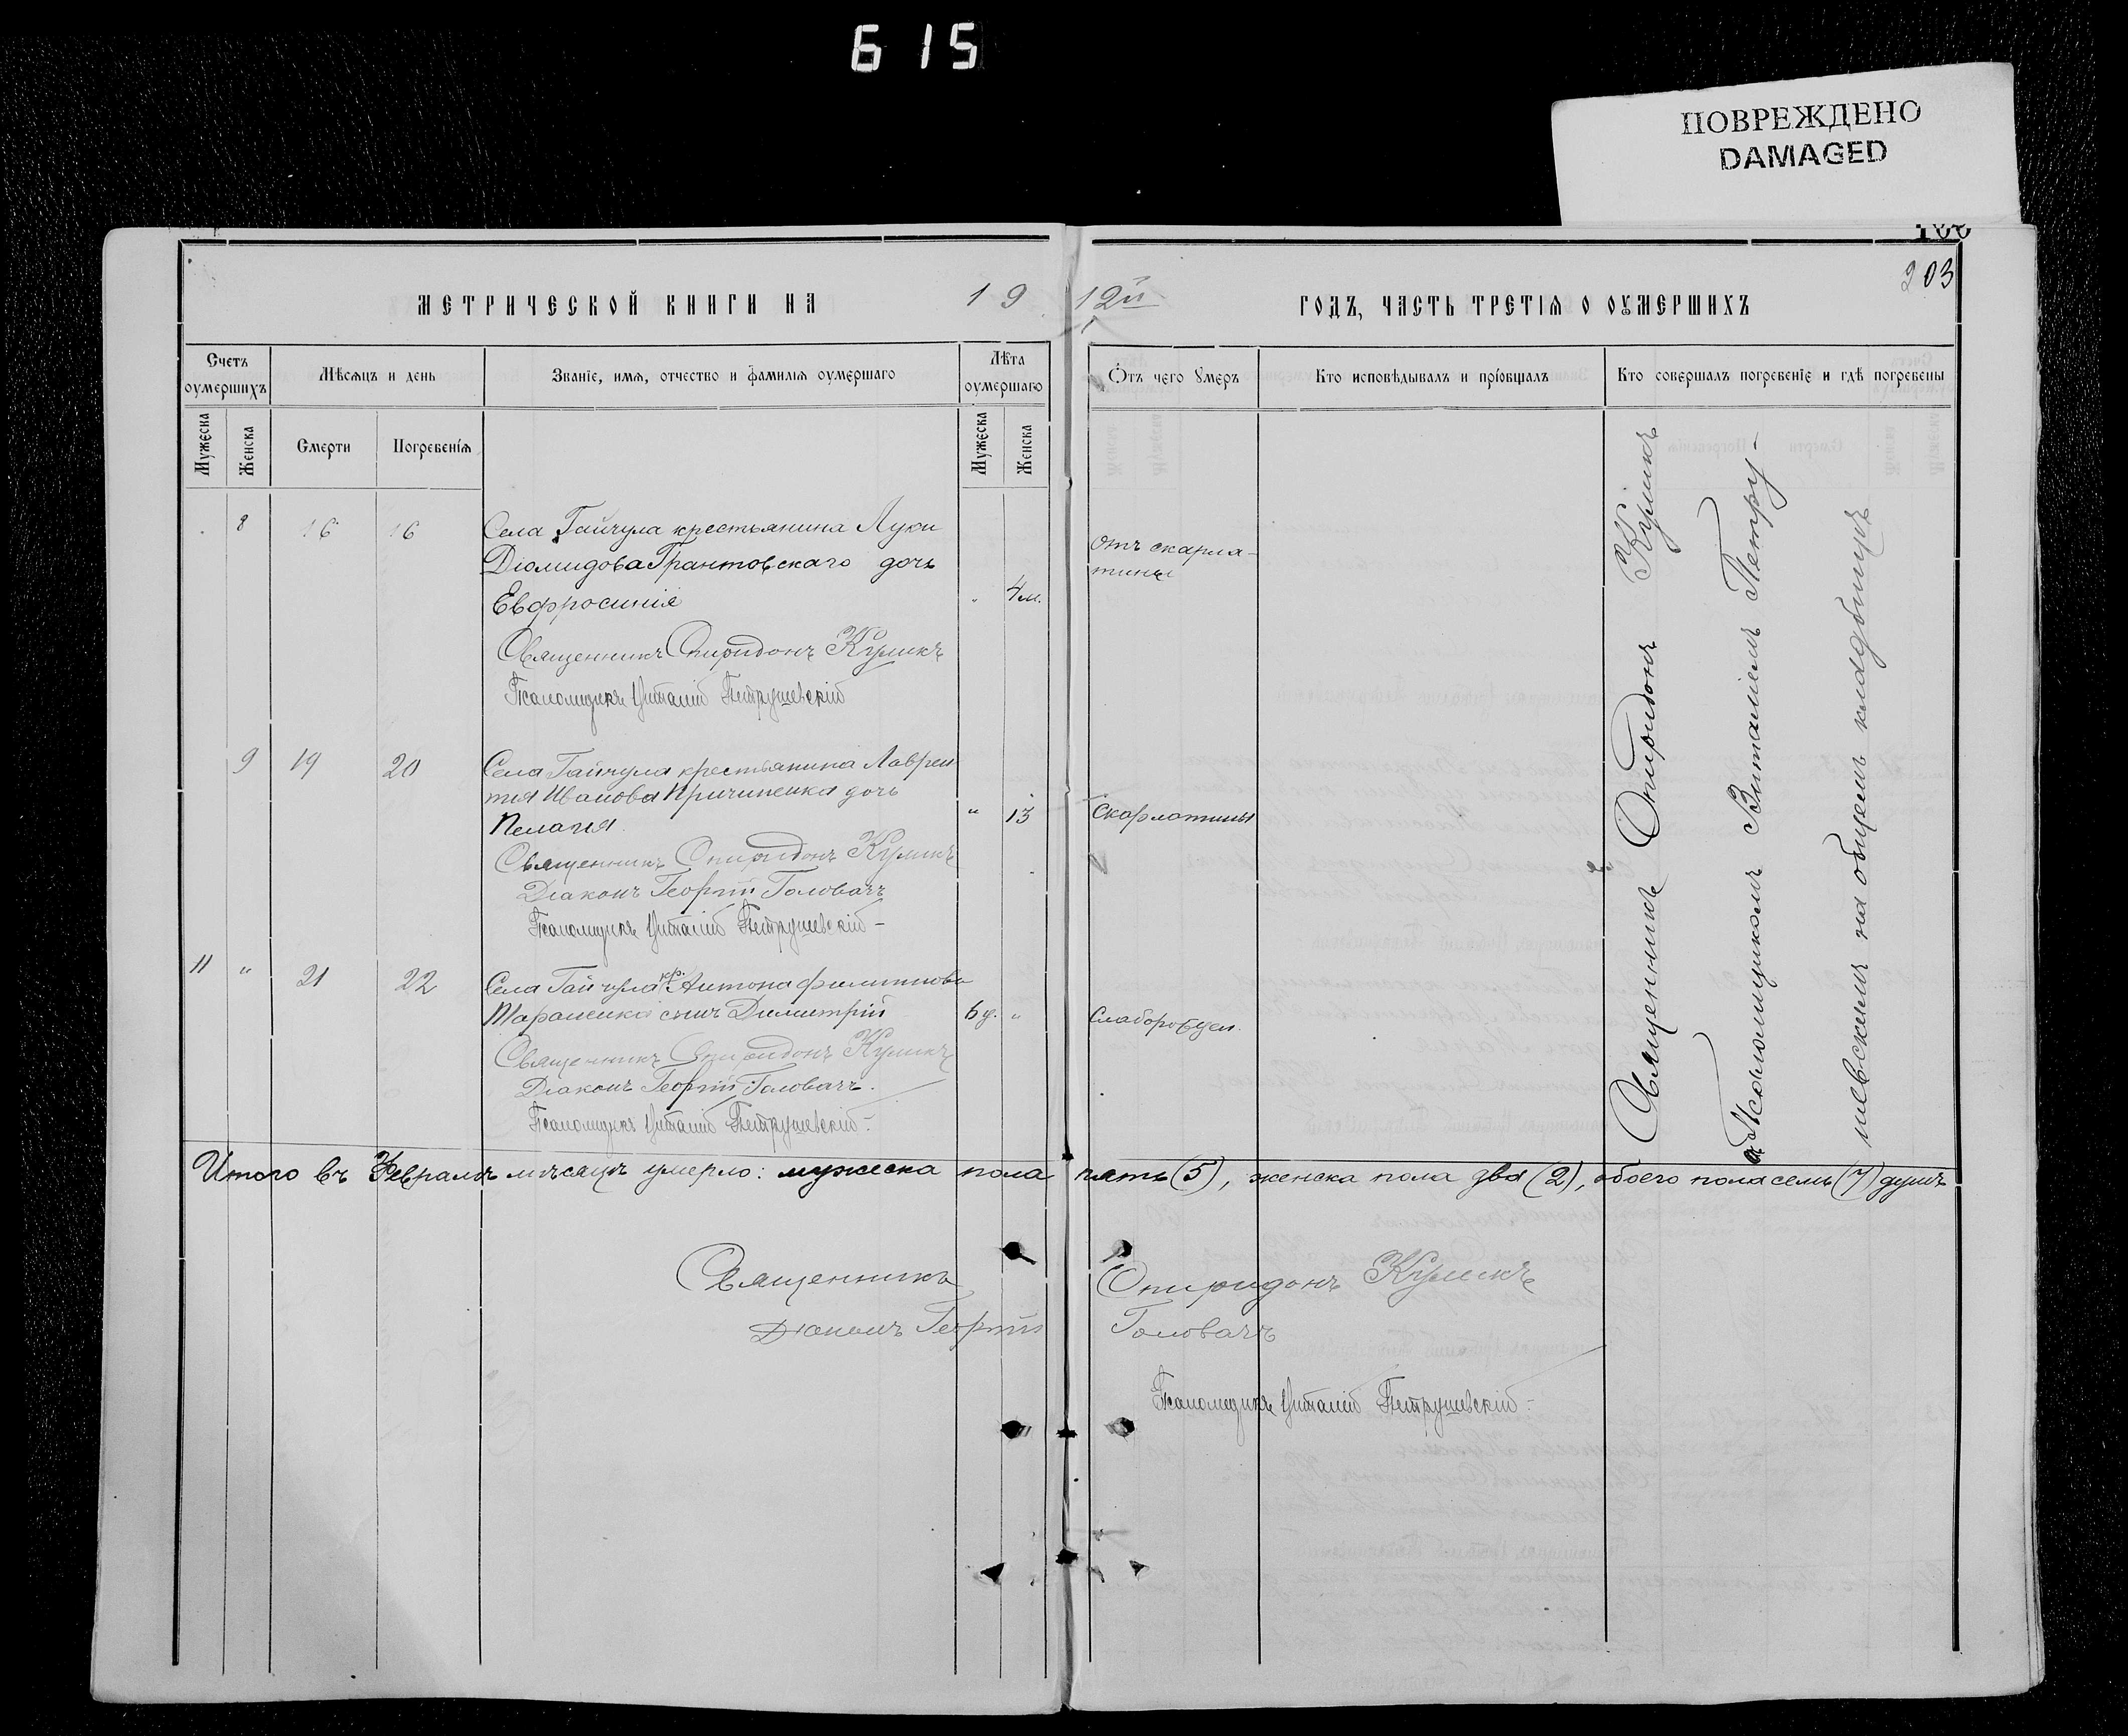 615
ПОВРЕЖДЕНО
DAMAGED
203
МЕТРИЧЕСКОЙ КНИГИ НА 19 12й ГОДЪ, ЧАСТЬ ТРЕТІЯ О ОУМЕРШИХЪ
Счетъ оумершихъ
Мѣсяцъ и день
Званіе, имя, отчество и фамилія оумершаго
Лѣта оумершаго
Отъ чего умеръ
Кто исповѣдывалъ и пріобщалъ
Кто совершалъ погребеніе и гдѣ погребены
Мужеска
Женска
Смерти
Погребенія
Мужеска
Женска
8 16 16 Села Гайчула крестьянина Луки
Діомидова Грантовскаго дочь
Евфросинія " 4 м.
отъ скарла-
тины
Священникъ Спиридонъ Куликъ
Псаломщикъ Виталій Петрушевскій
9 19 20 Села Гайчула крестьянина Лаврен
тія Иванова Кричипенка дочь
Пелагия " 13 Скарлатины
Священникъ Спиридонъ Куликъ
Діаконъ Георгій Головачъ
Псаломщикъ Виталій Петрушевскій -
11 " 21 22 Села Гайчула кр. Антона Филиппова
Тараненка сынъ Димитрій 6 д. "
Священникъ Спиридонъ Куликъ
Діаконъ Георгій Головачъ.
Псаломщикъ Виталій Петрушевскій -
Священникъ Спиридонъ Куликъ
Псаломщикомъ Виталіемъ Петру-
шевскимъ на общемъ кладбищѣ
Итого въ Февралѣ мѣсяцѣ умерло: мужеска пола пять (5), женска пола два (2), обоего пола семь (7) душъ
Священникъ Спиридонъ Куликъ
Діаконъ Георгій Головачъ
Псаломщикъ Виталій Петрушевскій -